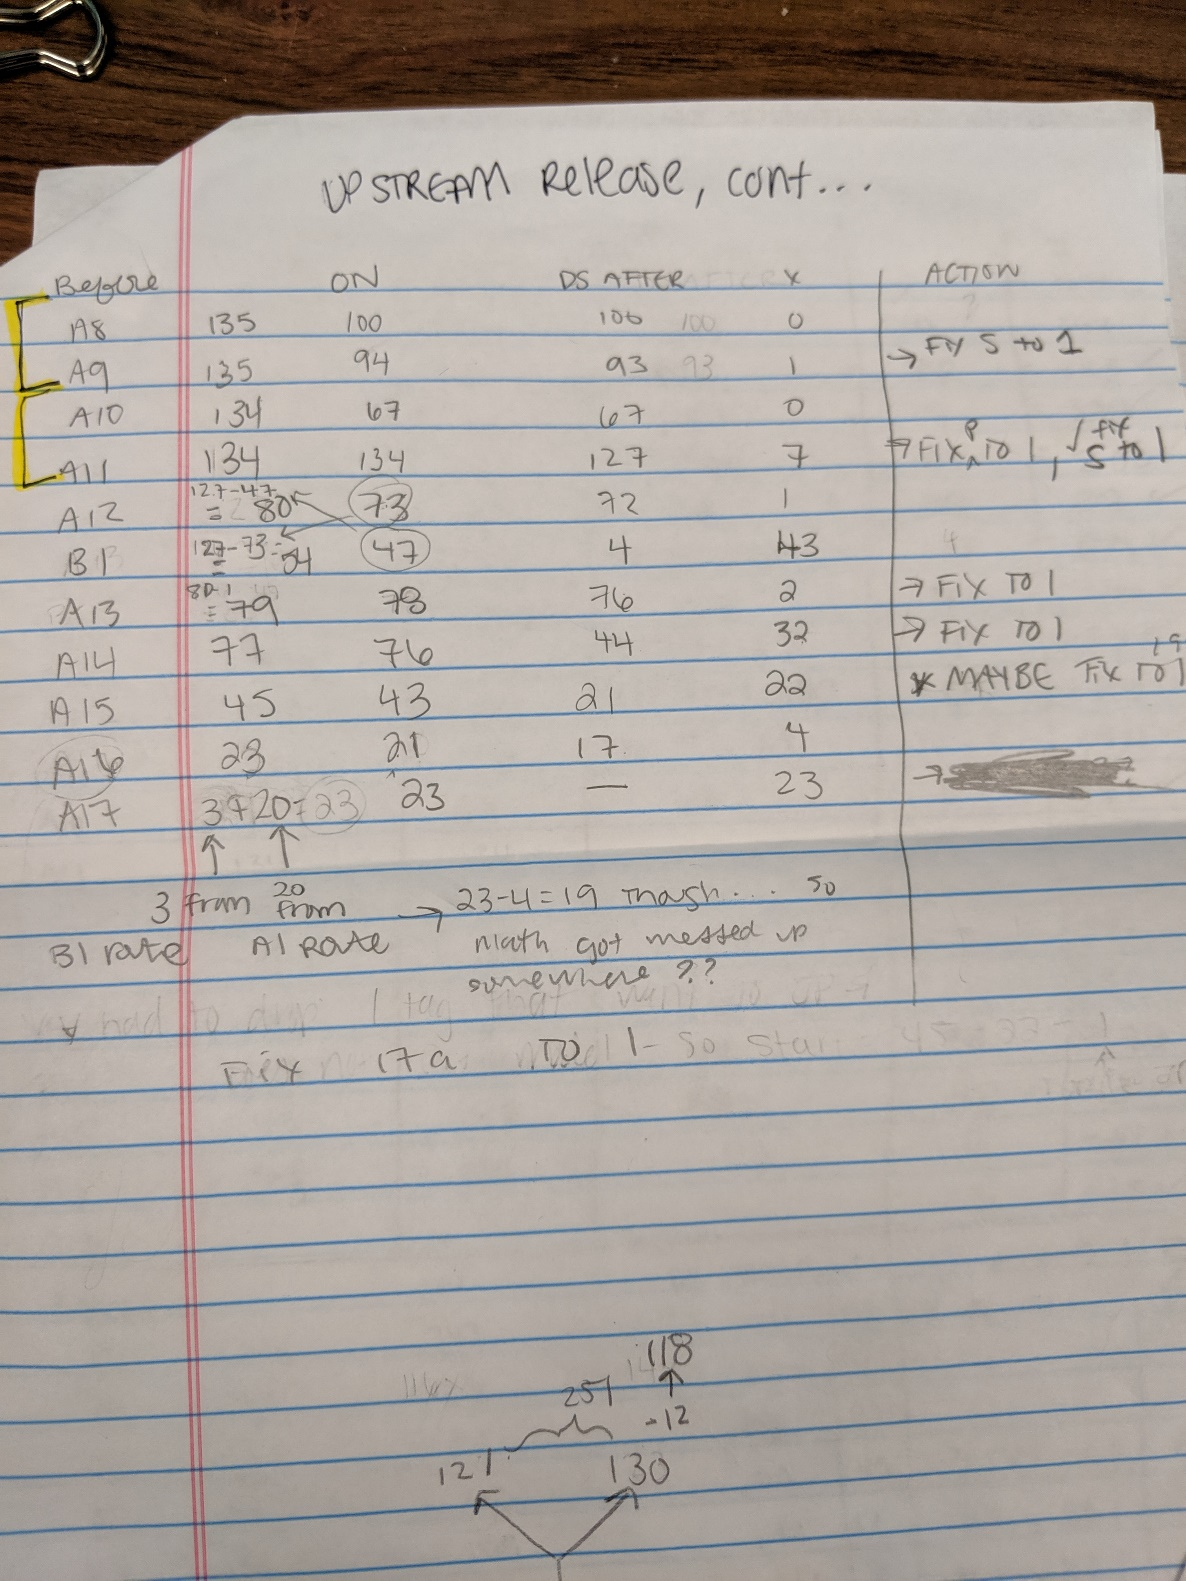 UPSTREAM Release, cont...
Before ON DS AFTER X ACTION
A8 135 100 100 100 0
A9 135 94 93 93 1 → FIX S to 1
A10 134 67 67 0
A11 134 134 127 7 → FIX P TO 1, √ fix S to 1
A12 127-47 = 80 73 72 1
B1 127-73 = 54 47 4 43
A13 80-1 = 79 78 76 2 → FIX TO 1
A14 77 76 44 32 → FIX TO 1
A15 45 43 21 22 * MAYBE FIX TO 1
A16 23 21 17 4
A17 3+20=23 23 — 23 →
3 from B1 rate
20 from A1 ROUTE
→ 23-4=19 though.... so
math got messed up
somewhere ??
had to drop 1 tag that want to up
Fix 17a TO 1 - so star
118
257 -12
127 130